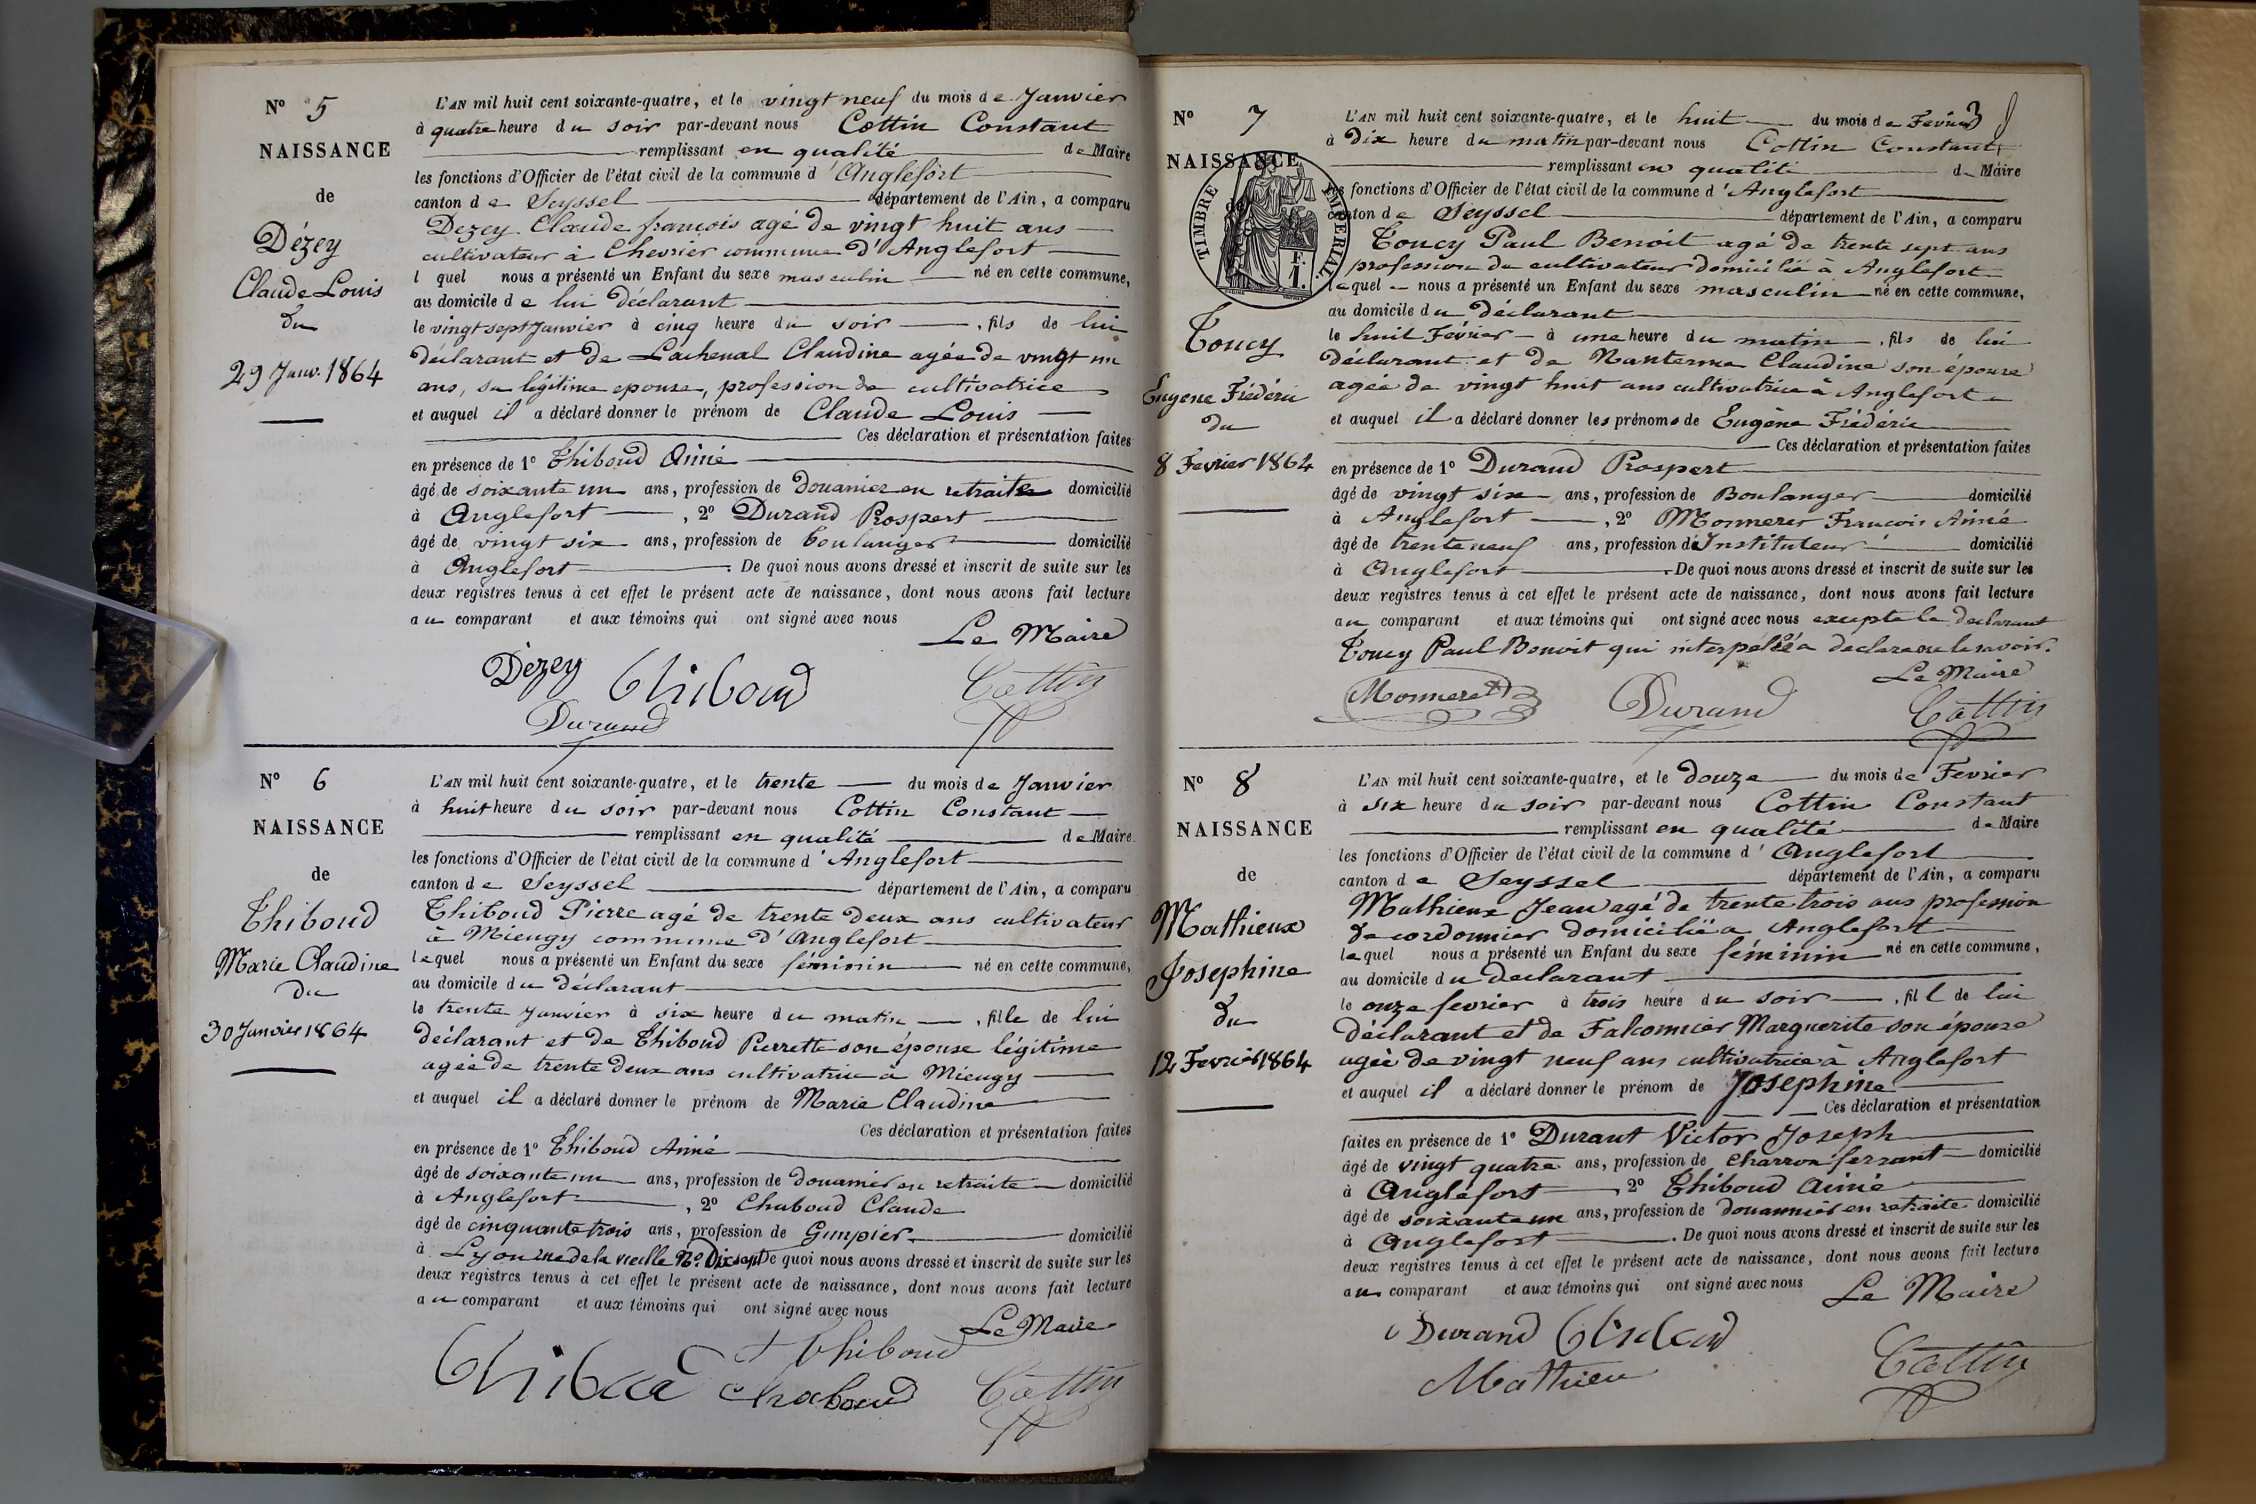 N° 5
NAISSANCE
de
Dézey
Claude Louis
du
29 Janv. 1864
L'AN mil huit cent soixante-quatre, et le vingt neuf du mois de Janvier
à quatre heure du soir par-devant nous Cottin Constant
remplissant en qualité de Maire
les fonctions d'Officier de l'état civil de la commune d'Anglefort
canton de Seyssel département de l'Ain, a comparu
Dezey Claude françois agé de vingt huit ans
cultivateur à Chevrier commune d'Anglefort
l quel nous a présenté un Enfant du sexe masculin né en cette commune,
au domicile de lui déclarant
le vingt sept Janvier à cinq heure du soir, fils de lui
déclarant et de Lachenal Claudine agée de vingt un
ans, sa légitime epouse, profession de cultivatrice
et auquel il a déclaré donner le prénom de Claude Louis
Ces déclaration et présentation faites
en présence de 1° Thiboud Aimé
âgé de soixante un ans, profession de douanier en retraite domicilié
à Anglefort, 2° Durand Prospert
âgé de vingt six ans, profession de boulanger domicilié
à Anglefort. De quoi nous avons dressé et inscrit de suite sur les
deux registres tenus à cet effet le présent acte de naissance, dont nous avons fait lecture
au comparant et aux témoins qui ont signé avec nous
Le Maire
Dezey Thiboud Cottin
Durand
N° 6
NAISSANCE
de
Thiboud
Marie Claudine
du
30 Janvier 1864
L'AN mil huit cent soixante-quatre, et le trente du mois de Janvier
à huit heure du soir par-devant nous Cottin Constant
remplissant en qualité de Maire
les fonctions d'Officier de l'état civil de la commune d'Anglefort
canton de Seyssel département de l'Ain, a comparu
Thiboud Pierre agé de trente deux ans cultivateur
à Mieugy commune d'Anglefort
lequel nous a présenté un Enfant du sexe féminin né en cette commune,
au domicile du déclarant
le trente Janvier à six heure du matin, fille de lui
déclarant et de Thiboud Pierrette son épouse légitime
agée de trente deux ans cultivatrice à Mieugy
et auquel il a déclaré donner le prénom de Marie Claudine
Ces déclaration et présentation faites
en présence de 1° Thiboud Aimé
âgé de soixante un ans, profession de douanier en retraite domicilié
à Anglefort, 2° Chaboud Claude
âgé de cinquante trois ans, profession de Gimpier domicilié
à Lyon rue de la vieille N°. Dix sept De quoi nous avons dressé et inscrit de suite sur les
deux registres tenus à cet effet le présent acte de naissance, dont nous avons fait lecture
au comparant et aux témoins qui ont signé avec nous
Le Maire
Thiboud
Chaboud Cottin
N° 7
NAISSANCE
de
TIMBRE IMPERIAL
F.
1.
Toucy
Eugene Frédéric
du
8 Fevrier 1864
3
L'AN mil huit cent soixante-quatre, et le huit du mois de Fevrier
à Dix heure du matin par-devant nous Cottin Constant
remplissant en qualité de Maire
les fonctions d'Officier de l'état civil de la commune d'Anglefort
canton de Seyssel département de l'Ain, a comparu
Toucy Paul Benoit agé de trente sept ans
profession de cultivateur domicilié à Anglefort
lequel nous a présenté un Enfant du sexe masculin né en cette commune,
au domicile du déclarant
le huit Février à une heure du matin, fils de lui
déclarant et de Nanterme Claudine son épouse
agée de vingt huit ans cultivatrice à Anglefort
et auquel il a déclaré donner les prénoms de Eugène Frédéric
Ces déclaration et présentation faites
en présence de 1° Durand Prospert
âgé de vingt six ans, profession de Boulanger domicilié
à Anglefort, 2° Monneret François Aimé
âgé de trente neuf ans, profession d'Instituteur domicilié
à Anglefort. De quoi nous avons dressé et inscrit de suite sur les
deux registres tenus à cet effet le présent acte de naissance, dont nous avons fait lecture
au comparant et aux témoins qui ont signé avec nous excepte le declarant
Toucy Paul Benoit qui interpelé a declare ne le savoir.
Le Maire
Monneret Durand Cottin
N° 8
NAISSANCE
de
Mathieux
Josephine
du
12 Fevrier 1864
L'AN mil huit cent soixante-quatre, et le douze du mois de Fevrier
à six heure du soir par-devant nous Cottin Constant
remplissant en qualité de Maire
les fonctions d'Officier de l'état civil de la commune d'Anglefort
canton de Seyssel département de l'Ain, a comparu
Mathieux Jean agé de trente trois ans profession
de cordonnier domicilié a Anglefort
lequel nous a présenté un Enfant du sexe féminin né en cette commune,
au domicile du declarant
le onze fevrier à trois heure du soir, fill de lui
déclarant et de Falconnier Marguerite son épouse
agée de vingt neuf ans cultivatrice à Anglefort
et auquel il a déclaré donner le prénom de Josephine
Ces déclaration et présentation
faites en présence de 1° Durant Victor Joseph
âgé de vingt quatre ans, profession de charron ferrant domicilié
à Anglefort, 2° Thiboud Aimé
âgé de soixante un ans, profession de douannier en retraite domicilié
à Anglefort. De quoi nous avons dressé et inscrit de suite sur les
deux registres tenus à cet effet le présent acte de naissance, dont nous avons fait lecture
au comparant et aux témoins qui ont signé avec nous
Le Maire
Durand Thiboud
Mathieu Cottin